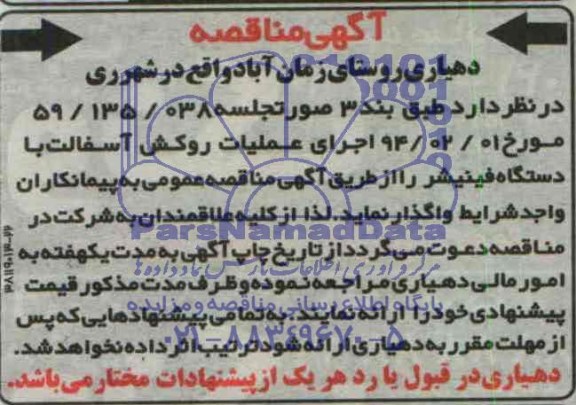 آگهی مناقصه
دهیاری روستای زمان آباد واقع در شهرری
در نظر دارد طبق بند ۳ صورتجلسه ۰۳۸ / ۱۳۵ / ۵۹
مورخ ۰۱ / ۰۲ / ۹۴ اجرای عملیات روکش آسفالت با
دستگاه فینیشر را از طریق آگهی مناقصه عمومی به پیمانکاران
واجد شرایط واگذار نماید. لذا از کلیه علاقمندان به شرکت در
مناقصه دعوت می گردد از تاریخ چاپ آگهی به مدت یکهفته به
امور مالی دهیاری مراجعه نموده و ظرف مدت مذکور قیمت
پیشنهادی خود را ارائه نمایند. به تمامی پیشنهادهایی که پس
از مهلت مقرر به دهیاری ارائه شود ترتیب اثر داده نخواهد شد.
دهیاری در قبول یا رد هر یک از پیشنهادات مختار می باشد.
ParsNamadData
مرکز فرآوری اطلاعات پارس نماد داده ها
پایگاه اطلاع رسانی مناقصه و مزایده
۰۲۱-۸۸۳۴۹۶۷۰-۵